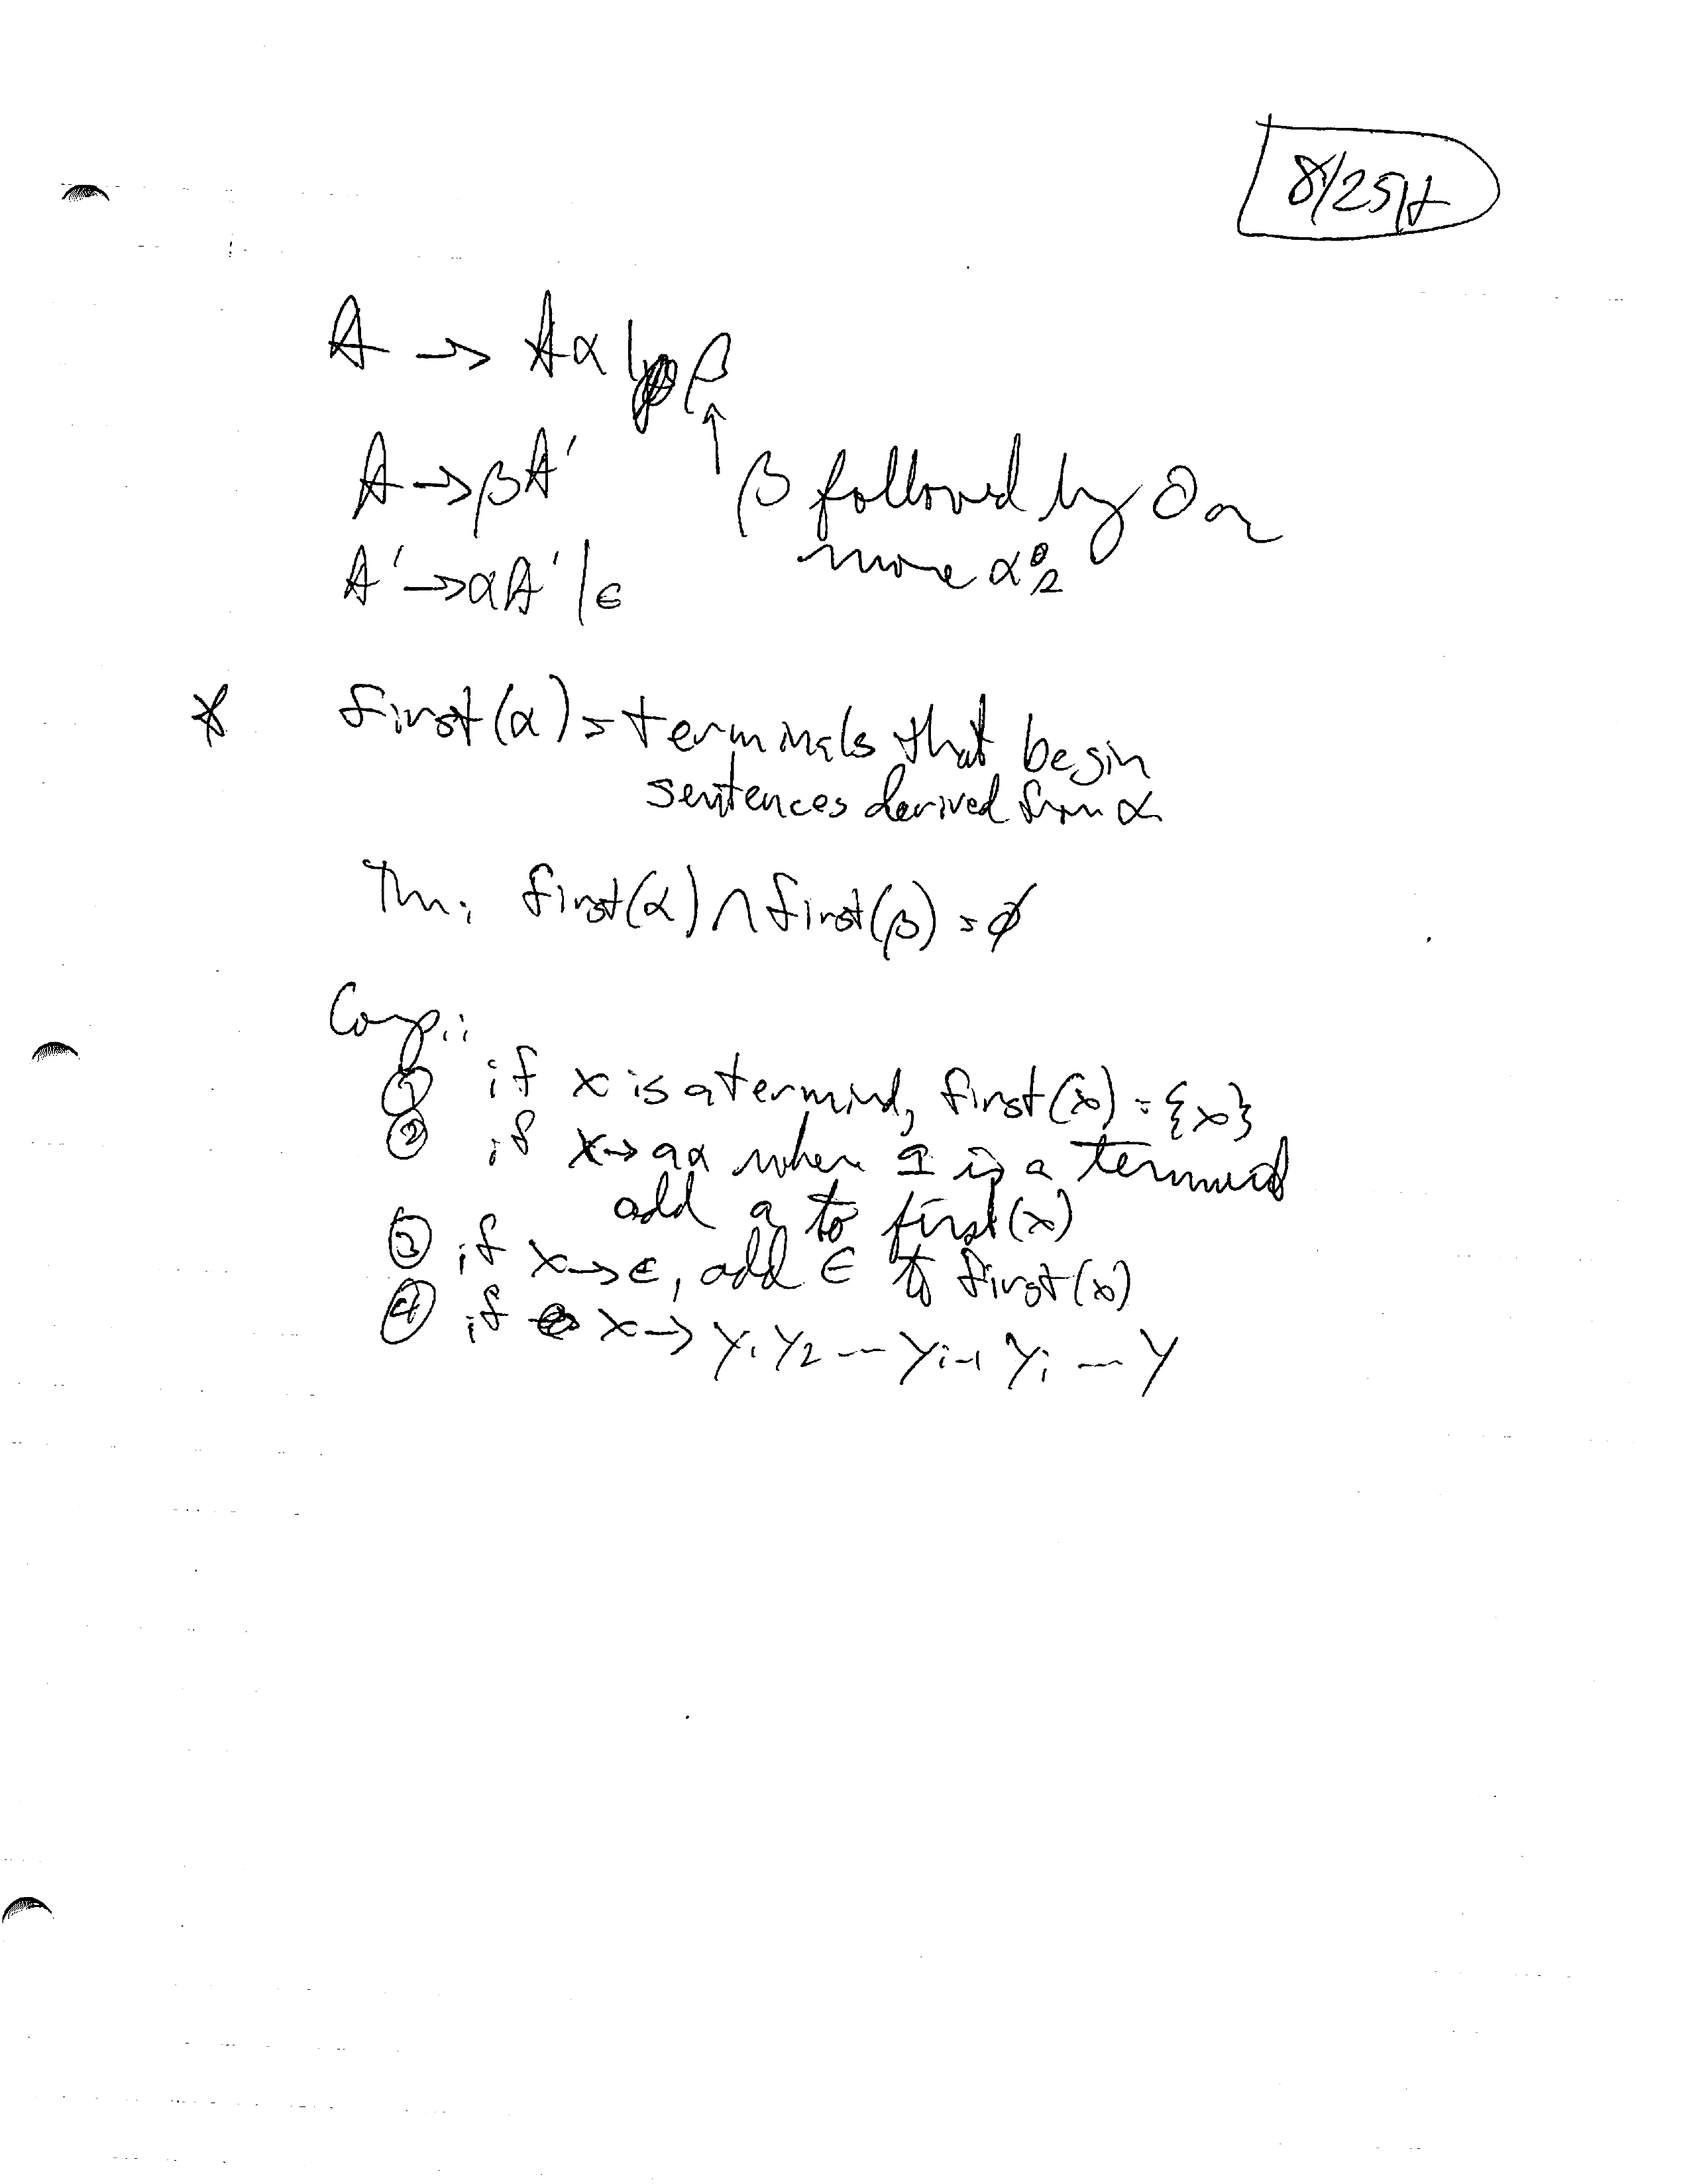 8/25/t
A → Aα | β
A → βA'
β followed by 0 or
more α's
A' → αA' | ε
* first(α) = terminals that begin
sentences derived from α
Thm: first(α) ∩ first(β) = ∅
Comp.:
① if x is a terminal, first(x) = {x}
② if x → aα where a is a terminal
add a to first(x)
③ if x → ε, add ε to first(x)
④ if x → Y₁ Y₂ --- Yᵢ₋₁ Yᵢ --- Y